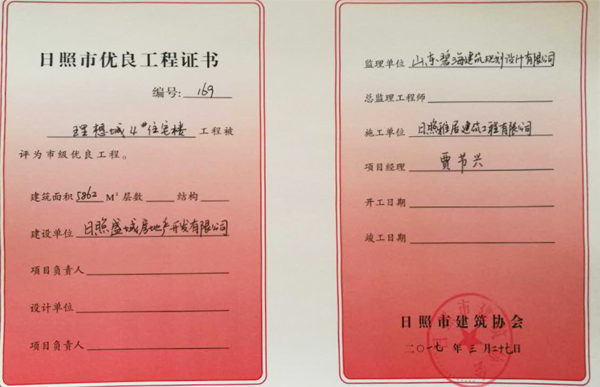 日照市优良工程证书
编号: 169
理想城4#住宅楼 工程被
评为市级优良工程。
建筑面积 5862 M² 层数 结构
建设单位 日照盛城房地产开发有限公司
项目负责人
设计单位
项目负责人
监理单位 山东碧海建筑规划设计有限公司
总监理工程师
施工单位 日照雅居建筑工程有限公司
项目经理 贾节兴
开工日期
竣工日期
日照市建筑协会
二〇一七年三月二十七日